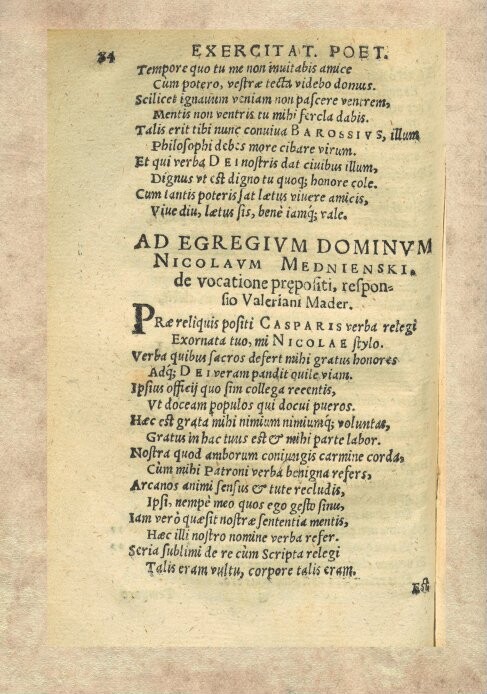 84 EXERCITAT. POET.
Tempore quo tu me non inuitabis amice
Cum potero, vestræ tecta videbo domus.
Scilicet ignauum veniam non pascere ventrem,
Mentis non ventris tu mihi fercla dabis.
Talis erit tibi nunc conuiua BAROSSIVS, illum
Philosophi debes more cibare virum.
Et qui verba DEI nostris dat ciuibus illum,
Dignus vt est digno tu quoq; honore cole.
Cum tantis poteris sat lætus viuere amicis,
Viue diu, lætus sis, benè iamq; vale.
AD EGREGIVM DOMINVM
NICOLAVM MEDNIENSKI.
de vocatione prępositi, respon-
sio Valeriani Mader.
PRæ reliquis positi CASPARIS verba relegi
Exornata tuo, mi NICOLAE stylo.
Verba quibus sacros defert mihi gratus honores
Adq; DEI veram pandit quile viam.
Ipsius officij quo sim collega recentis,
Vt doceam populos qui docui pueros.
Hæc est grata mihi nimium nimiumq; voluntas,
Gratus in hac tuus est & mihi parte labor.
Nostra quod amborum coniungis carmine corda,
Cùm mihi Patroni verba benigna refers,
Arcanos animi sensus & tute recludis,
Ipsi, nempè meo quos ego gesto sinu,
Iam verò quæsit nostræ sententia mentis,
Hæc illi nostro nomine verba refer.
Seria sublimi de re cùm Scripta relegi
Talis eram vultu, corpore talis eram.
Est